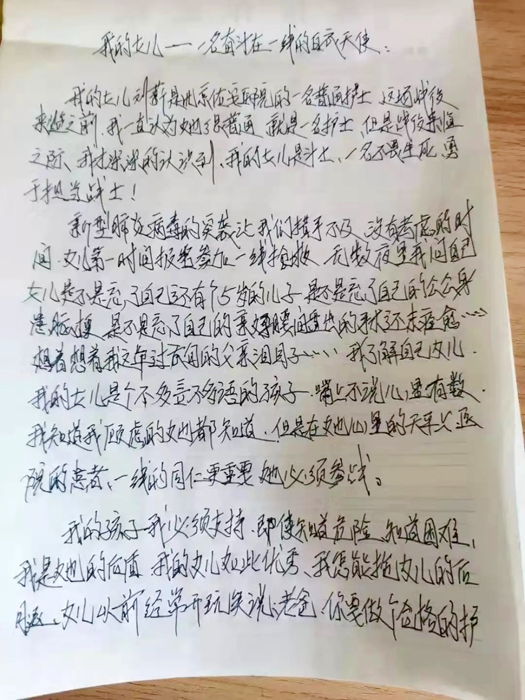 我的女儿——一名奋斗在一线的白衣天使：
我的女儿刘新是北京佑安医院的一名普通护士 这场战役
来临之前 我一直认为她很普通 就是一名护士 但是战役来临
之际、我才深深的认识到、我的女儿是斗士、一名不畏生死、勇
于担当战士！
新型肺炎病毒的突袭让我们措手不及、没有考虑的时
间、女儿第一时间报名参加一线抢救、无数夜里我问自己
女儿是不是忘了自己还有个5岁的儿子 是不是忘了自己的公公身
患脑梗 是不是忘了自己的亲妈腰间盘的手术还未痊愈……
想着想着我这年过六旬的父亲泪目了…… 我了解自己女儿
我的女儿是个不多言不多语的孩子 嘴上不说心里有数、
我知道我顾虑的她都知道、但是在她心里的天平上医
院的患者、一线的同仁更重要 她必须参战。
我的孩子我必须支持、即使知道危险 知道困难、
我是她的后盾 我的女儿如此优秀、我怎能拖女儿的后
腿、女儿以前经常开玩笑说：老爸 你要做个合格的护